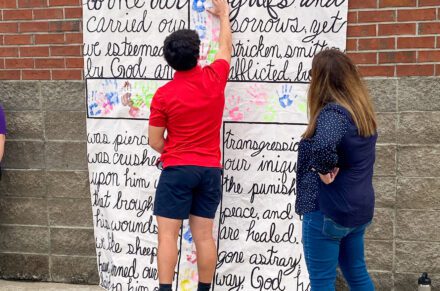 our griefs and
carried our sorrows, yet
we esteemed stricken smitten
by God an afflicted
was pierc transgress
was crushe our iniqu
upon him the punish
that brough peace, and
his wounds are healed
sheep gone astray
turned way. God